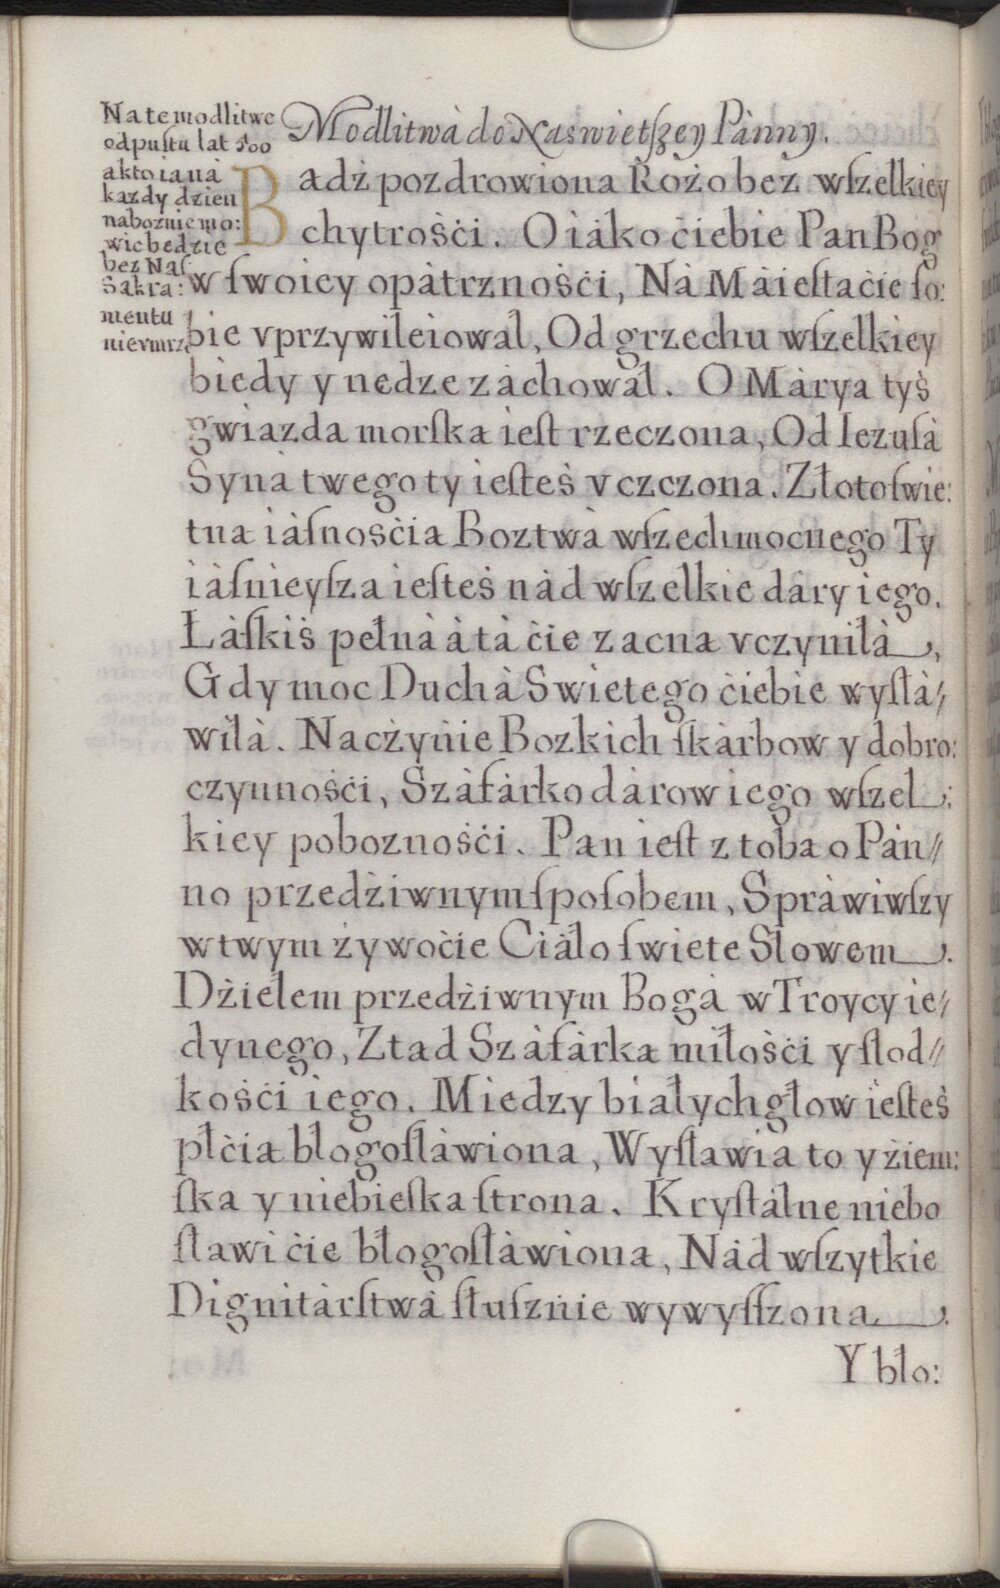 Modlitwà do Naswietſzey Pànny.
Na te modlitwe
odpuſtu lat 500
akto ia nà
kazdy dzien
naboznie mo:
wic bedzie
bez Naſ:
Sakra:
mentu
nievmrze
Badź pozdrowiona Rożo bez wſzelkiey
chytrośći. O iàko ćiebie Pan Bog
w ſwoiey opàtrznośći, Nà Màieſtaćie ſo:
bie vprzywileiował, Od grzechu wſzelkiey
biedy y nedze zàchował. O Màrya tyś
gwiazda morſka ieſt rzeczona, Od Iezuſà
Synà twego ty ieſteś vczczona. Złoto ſwie:
tna iàſnośćia Boztwà wſzechmocnego Ty
iàſnieyſza ieſteś nàd wſzelkie dàry iego.
Łàſkiś pełnà à tà ćie zacna vczyniłà,
Gdy moc Duchà Swietego ćiebie wyſtà//
wiłà. Naczyńie Bozkich ſkàrbow y dobro:
czynnośći, Szàfàrko dàrow iego wſzel:
kiey poboznośći. Pan ieſt z toba o Pàn//
no przedźiwnym ſpoſobem, Spràwiwſzy
w twym żywoćie Ciàło ſwiete Słowem.
Dźiełem przedźiwnym Bogà w Troycy ie//
dynego, Ztad Szàfàrka miłośći y ſłod//
kośći iego. Miedzy białychgłow ieſteś
płćia błogoſłàwiona, Wyſławia to y źiem:
ſka y niebieſka ſtrona. Kryſtàlne niebo
ſławi ćie błogoſłàwiona, Nàd wſzytkie
Dignitàrſtwà ſłuſznie wywyſſzona.
Y bło: